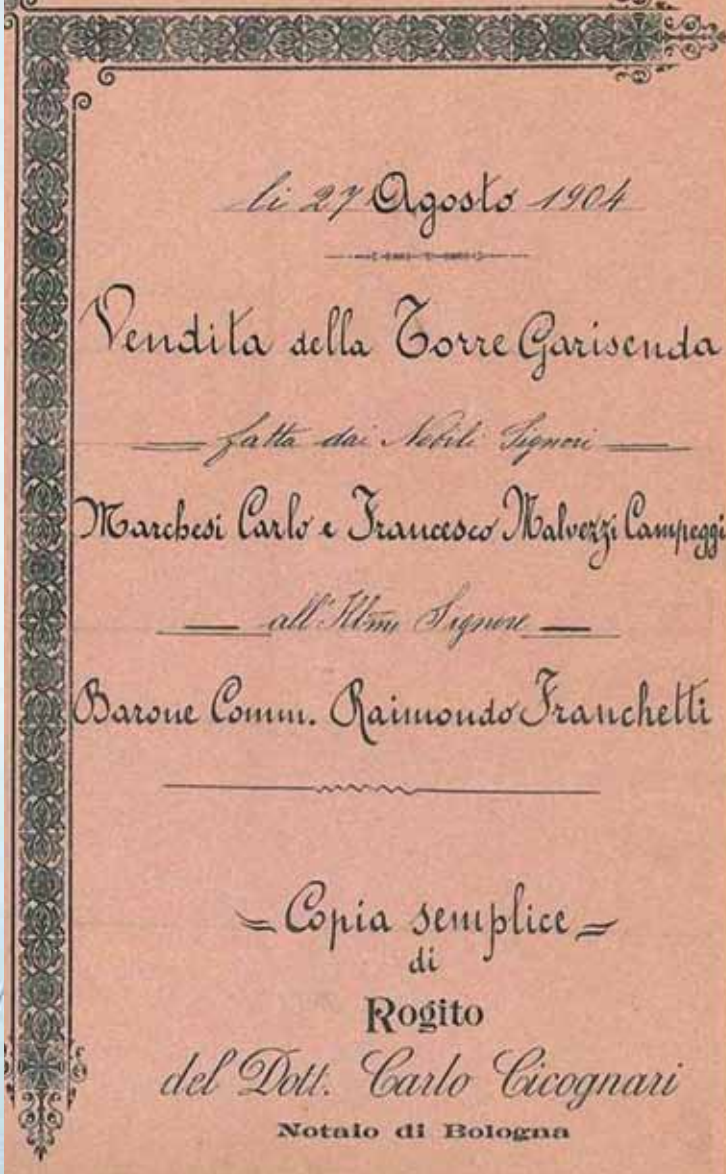 li 27 Agosto 1904
Vendita della Torre Garisenda
fatta dai Nobili Signori
Marchesi Carlo e Francesco Malvezzi Campeggi
all'Ill.mo Signore
Barone Comm. Raimondo Franchetti
Copia semplice
di
Rogito
del Dott. Carlo Cicognari
Notaio di Bologna